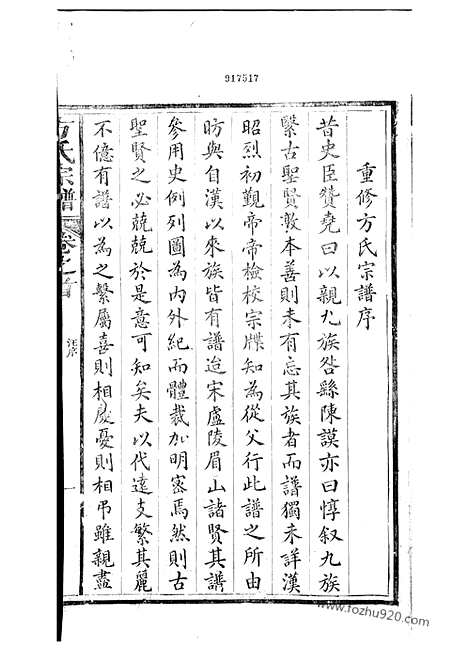 917517
重修方氏宗譜序
昔史臣贊堯曰以親九族咎繇陳謨亦曰惇叙九族
繄古聖賢敦本善則未有忘其族者而譜獨未詳漢
昭烈初觀帝帝檢校宗牒知為從父行此譜之所由
昉與自漢以來族皆有譜迨宋盧陵眉山諸賢其譜
參用史例列圖為內外紀而體裁加明密焉然則古
聖賢之必兢兢於是意可知矣夫以代遠支繁其麗
不億有譜以為之繫屬喜則相慶憂則相弔雖親盡
方氏宗譜
卷之首
汪序
一
www.fozhu920.com